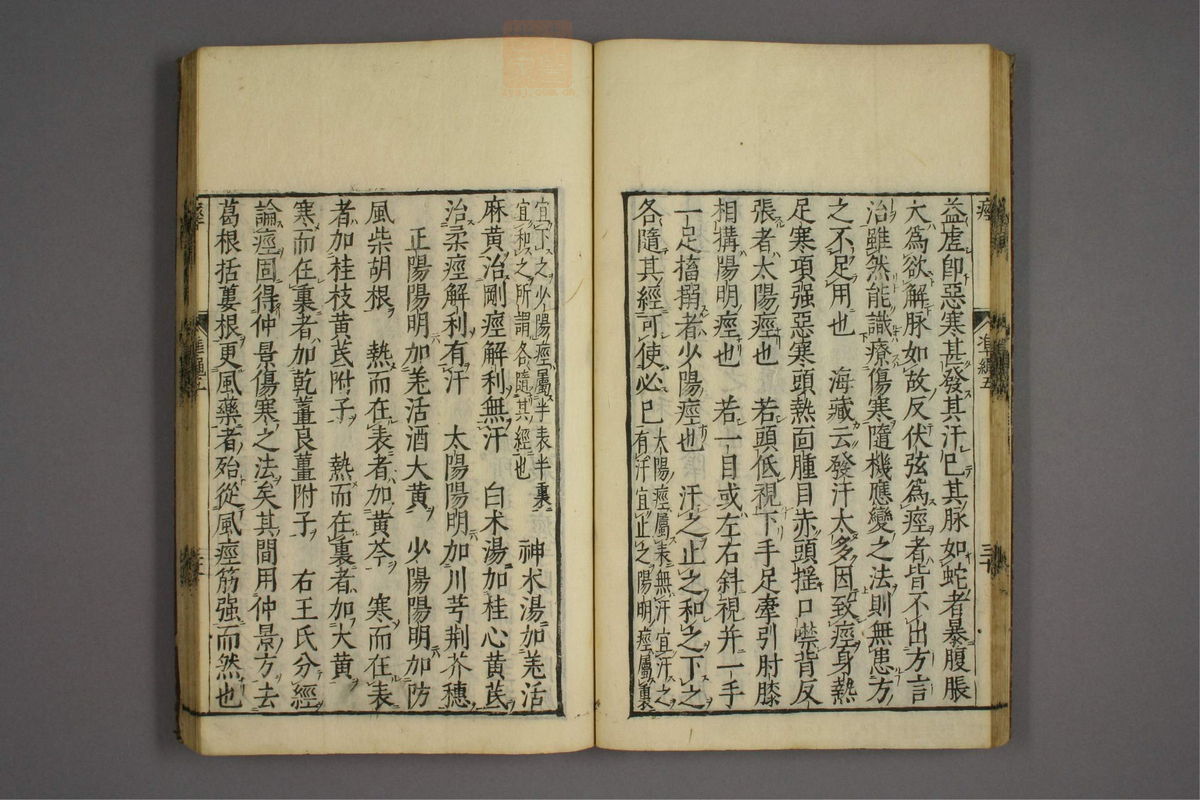 痙
准繩五
三十
益虚卽惡寒甚發其汗已其脉如蛇者暴腹脹
大爲欲解脉如故反伏弦爲痙者皆不出方言
治雖然能識療傷寒隨機應變之法則無患方
之不足用也　海藏云發汗太多因致痙身熱
足寒項强惡寒頭熱面腫目赤頭揺口噤背反
張者太陽痙也　若頭低視下手足牽引肘膝
相搆陽明痙也　若一目或左右斜視并一手
一足搐搦者少陽痙也　汗之止之和之下之
各隨其經可使必已太陽痙屬表無汗宜汗之有汗宜止之陽明痙屬裏
宜下之少陽痙屬半表半裏宜和之所謂各隨其經也　神术湯加羗活
麻黄治剛痙解利無汗　白术湯加桂心黄芪
治柔痙解利有汗　太陽陽明加川芎荆芥穗
正陽陽明加羗活酒大黄　少陽陽明加防
風柴胡根　熱而在表者加黄芩　寒而在表
者加桂枝黄芪附子　熱而在裏者加大黄
寒而在裏者加乾薑良薑附子　右王氏分經
論痙固得仲景傷寒之法矣其間用仲景方去
葛根括蔞根更風藥者殆從風痙筋强而然也
准繩五